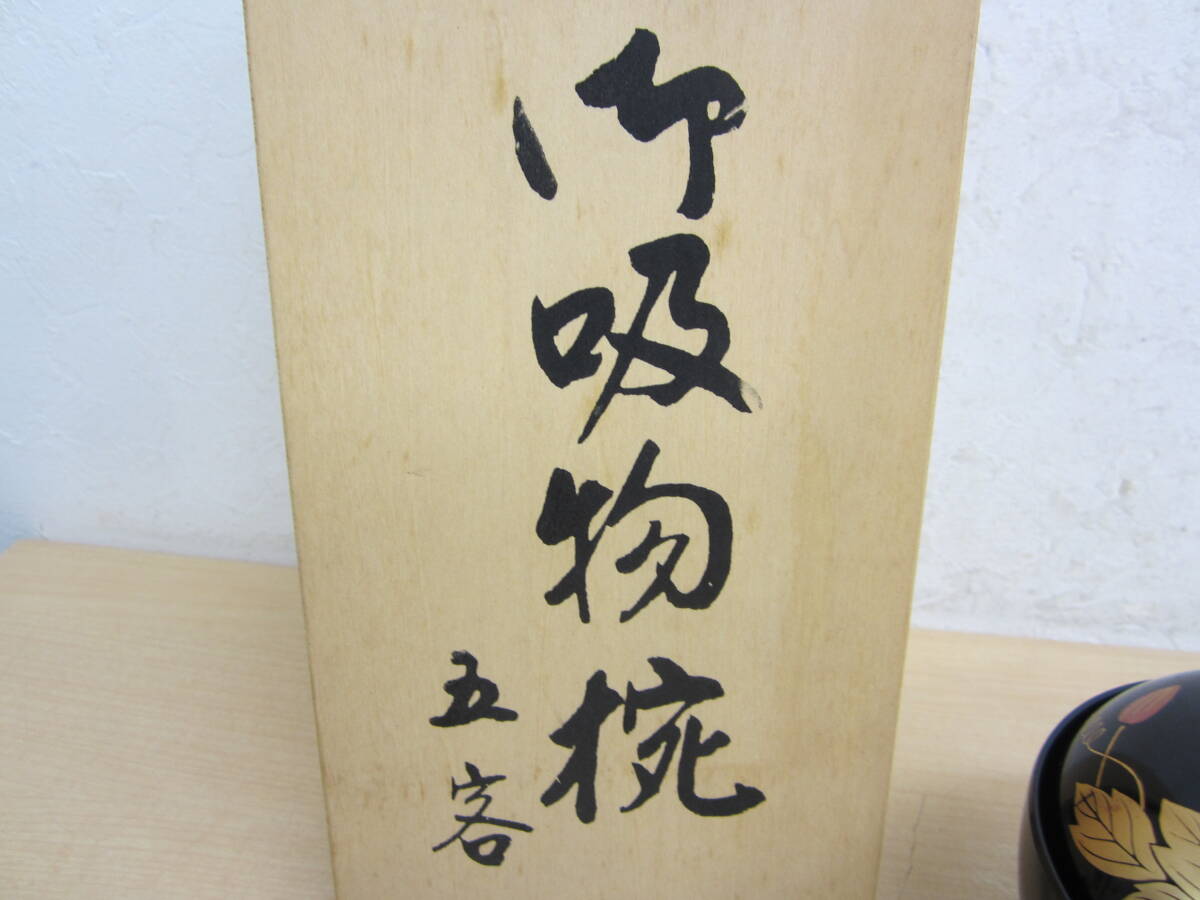 御吸物椀
五客